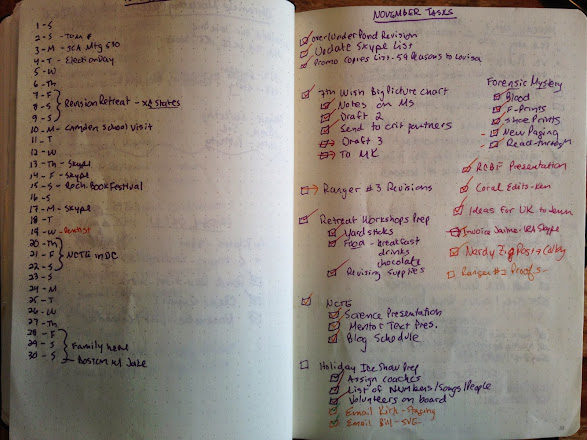 1 - S
2 - S - TOM
3 - M - SCA Mtg 630
4 - T - Election Day
5 - W
6 - Th
7 - F
8 - S Revision Retreat - x4 states
9 - S
10 - M - Camden School Visit
11 - T
12 - W
13 - Th - Skype
14 - F - Skype
15 - S - Roch. Book Festival
16 - S
17 - M - Skype
18 - T
19 - W - Dentist
20 - Th
21 - F NCTE in DC
22 - S
23 - S
24 - M
25 - T
26 - W
27 - Th
28 - F
29 - S Family here
30 - S - Boston w/ Jake
NOVEMBER TASKS
Over/Under Pond Revision
Update Skype List
Promo Copies List - 59 Reasons to Louisa
7th Wish Big Picture Chart
Notes on MS
Draft 2
Send to crit partners
Draft 3
To MK
Ranger #3 Revisions
Retreat Workshops Prep
Yard sticks
Food - breakfast
drinks
chocolate
Revising Supplies
NCTE
Science Presentation
Mentor Text Pres.
Blog Schedule
Holiday Ice Show Prep
Assign coaches
List of Numbers/Songs/People
Volunteers on board
Email Kirk - Staging
Email Bill - SVE
Forensic Mystery
Blood
F-Prints
Shoe Prints
New Paging
Read-through
RCBF Presentation
Coral Edits - Ken
Ideas for UK to Jenn
Invoice Jaime - VA Skype
Nerdy Zig Post → Colby
Ranger #2 Proofs